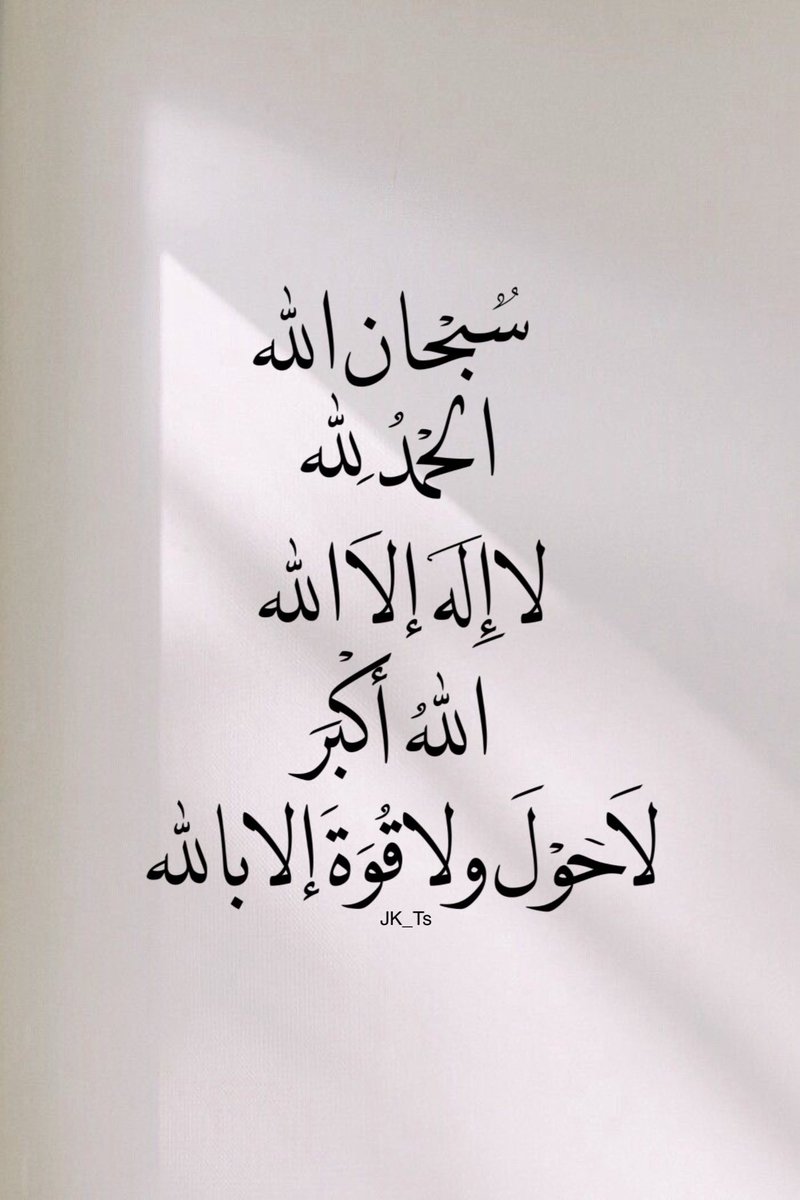 سُبْحان الله
الحَمْدُ لِله
لا إِلَهَ إلاَ الله
اللهُ أكْبَرَ
لاَحَوْلَ ولا قُوَةَ إلا بالله
JK_Ts